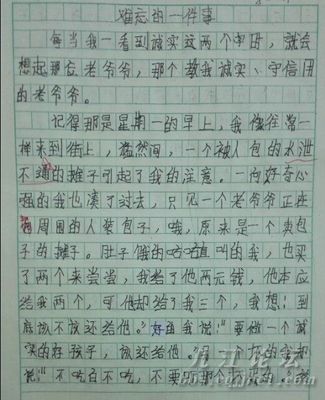 难忘的一件事
每当我一看到诚实这两个字时，就会
想起那位老爷爷，那个教我诚实、守信用
的老爷爷。
记得那是星期一的早上，我像往常一
样来到街上，猛然间，一个被人包的水泄
不通的摊子引起了我的注意。一向好奇心
强的我也凑了过去，只见一个老爷爷正在
周围的人装包子，哦，原来是一个卖包
子的摊子。肚子饿的咕咕直叫的我，也买
了两个来尝尝，我给了他两元钱，他本应
给我两个，可他却给了我三个，我想：到
底该不该还给他。"好的我说："要做一个诚
实的好孩子，该还给他。"一个坏的我却
说："不吃白不吃，不要